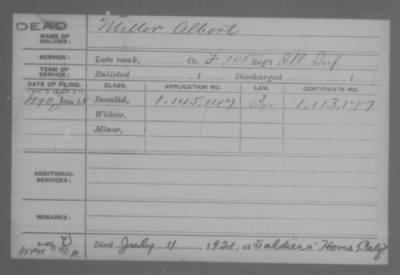 DEAD
NAME OF SOLDIER: Miller Albert
SERVICE: Late rank, Co. F, 105 Reg't Ill Inf
TERM OF SERVICE: Enlisted , 1 Discharged , 1
DATE OF FILING. CLASS. APPLICATION NO. LAW. CERTIFICATE NO.
1892 June 28 Invalid, 1,145,147 1,113,177
Widow,
Minor,
ADDITIONAL SERVICES:
REMARKS:
Died July 11, 1921, at Soldiers' Home, Calif